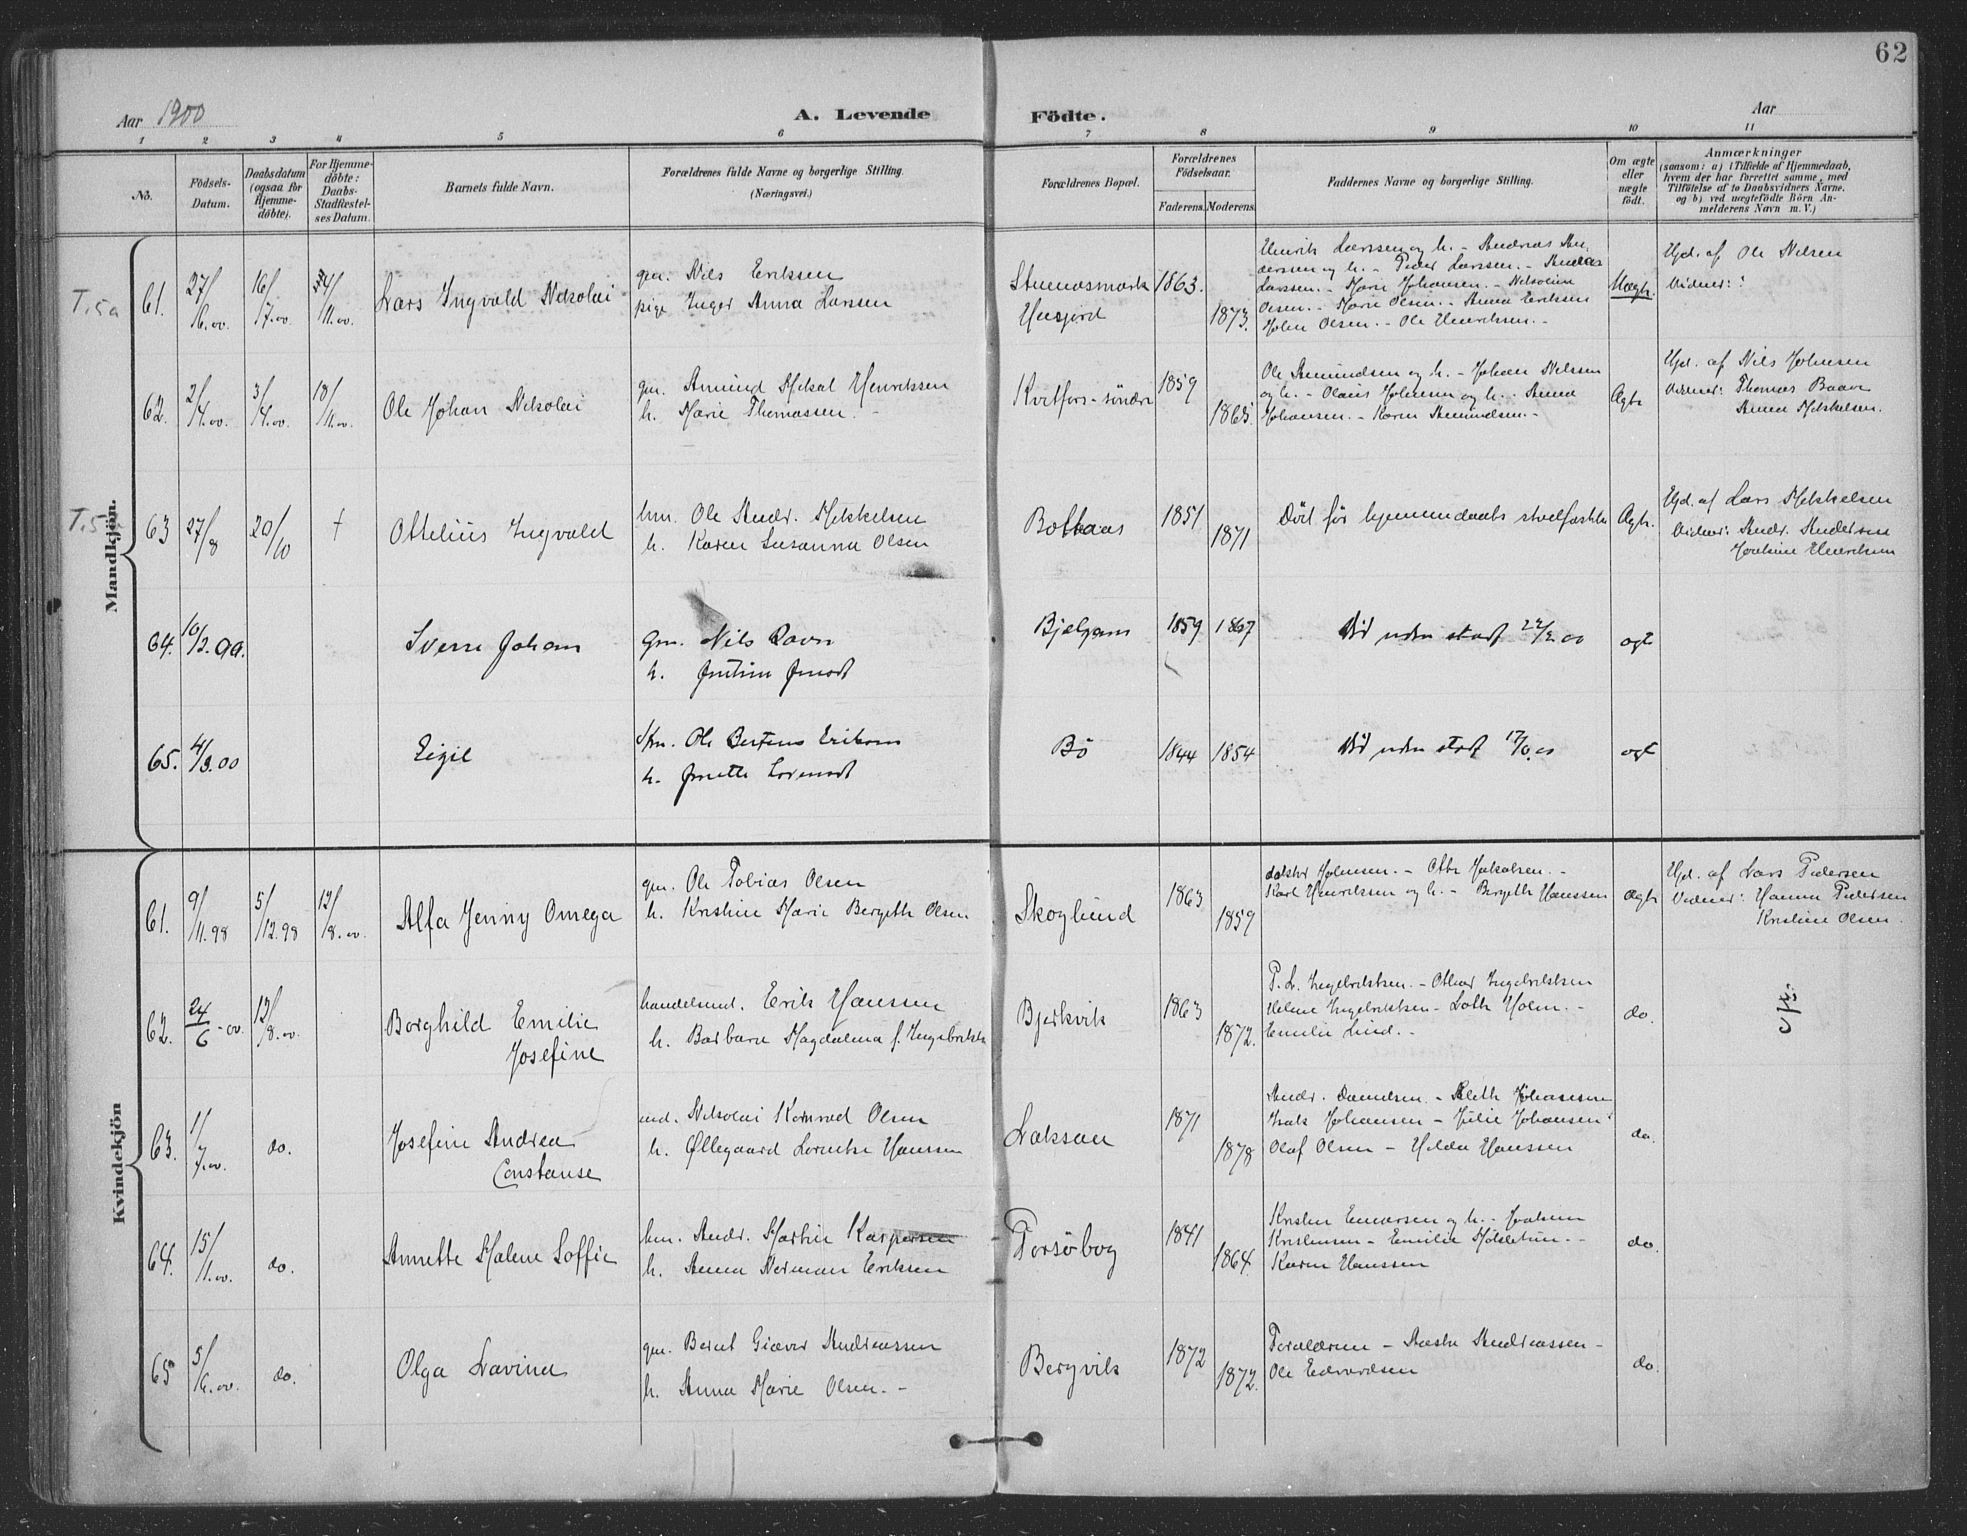 62
Aar 1900
A. Levende Födte.
Aar
1 2 3 4 5 6 7 8 9 10 11
No.
Födsels-Datum.
Daabsdatum (ogsaa for Hjemme-döbte).
For Hjemme-döbte: Daabs-Stadfæstel-ses Datum.
Barnets fulde Navn.
Forældrenes fulde Navne og borgerlige Stilling.
(Næringsvei.)
Forældrenes Bopæl.
Forældrenes Födselsaar.
Faderens. Moderens.
Faddernes Navne og borgerlige Stilling.
Om ægte eller uægte födt.
Anmærkninger
(saasom: a) i Tilfælde af Hjemmedaab,
hvem der har forrettet samme, med
Tilföielse af to Daabsvidners Navne.
og b) ved uægtefödte Börn An-
melderens Navn m. V.)
Mandkjön.
T. 5a
61. 27/6.00 16/7.00 4/11.00 Lars Ingvald Nikolai
gm. Nils Eriksen
pige Inger Anna Larsen
1863. 1873.
Henrik Larssen og h. - Andreas An-
derssen og h. - Peder Larssen. - Andreas
Larssen. - Marie Johansen. - Nikoline
Olsen. - Marie Olsen. - Anna Eriksen
Olsen. - Ole Henriksen. -
Uægt.
Hjd. af Ole Nilsen
Vidner:
62. 2/4.00. 3/4.00. 18/11.00. Ole Johan Nikolai
gm. Amund Mikal Henriksen
h. Marie Thomassen. -
Kvitfors - söndre
1859 1865.
Ole Amundsen og h. - Johan Nilsen
og h. - Olaus Johnsen og h. - Anna
Johansen. - Karen Amundsen. -
Ægte
Hjd. af Nils Johnsen
Vidner: Thomas
Anna Mikkelsen.
T. 5
63 27/8 20/10 + Ottelius Ingvald
hm. Ole Andr. Mikkelsen
h. Karen Susanna Olsen
Botnaas
1851 1871
Död för hjemmedaabs stadfæstelse
Ægte.
Hjd. af Lars Mikkelsen
Vidner: Andr. Andersen
Henriksen
64. 10/2.99. Sverre Johan
gm. Nils Ravn
h.
1859 1867
Död uden stadf 22/2.00
ægte
65. 4/3.00 Eigil
Ole Eriksen
h.
Bö
1844 1854
Död uden stadf
ægte
Kvindekjön
61. 9/11.98 5/12.98 12/8.00. Alfa Jenny Omega
gm. Ole Tobias Olsen
h. Kristine Marie Bergeth Olsen
Skoglund
1863 1859
Johnsen. - Otte Jakobsen. -
Karl Henriksen og h. - Bergette Hanssen
Ægte
Hjd. af Lars Pedersen
Vidner: Hanna Pedersen
Kristine Olsen.
62. 24/6-00. 12/8.00. Borghild Emilie
Josefine
handelsmd. Erik Hanssen
h. Barbara Magdalena f. Ingebriktsen
Bjerkvik
1863 1872.
P. L. Ingebriktsen. - Othar Ingebriktsen
Helene Ingebriktsen - Loth Holm. -
Emilie Lind. -
do.
63. 1/7.00. do. Josefine Andrea
Constanse
Nikolai Konrad Olsen
h. Øllegaard Hanssen
Laksaa
1871 1878
Andr. Danielsen - Johannesen
Isak Johansen - Julie Johansen
Olaf Olsen - Hilda Hanssen
do.
64. 15/11.00. do. Annette Malene Soffie
hm. Andr. Martin Kaspersen
h. Anna Norman Eriksen
1841 1864.
Kristen Einarsen og h. -
Kristensen - Emilie
Karen Hanssen
do.
65 5/6.00. do. Olga Lavina
gm. Bernt Giæver Andreassen
h. Anna Marie Olsen. -
Bergvik
1872 1872.
Forældrene - Aaste Andreassen -
Ole Edvardsen
do.